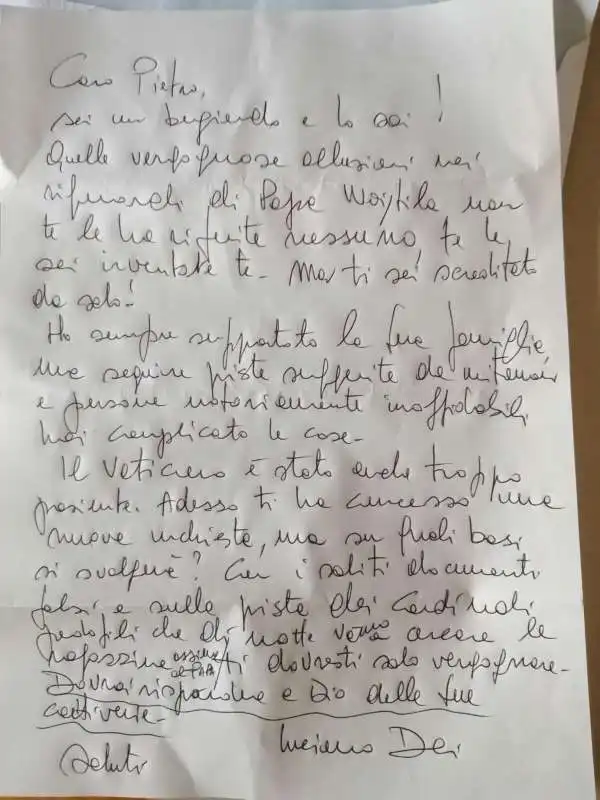 Caro Pietro,
sei un bugiardo e lo sai!
Quelle vergognose allusioni nei
riguardi di Papa Wojtila non
te le ha riferite nessuno, te le
sei inventate te. Ma ti sei screditato
da solo!
Ho sempre supportato la tua famiglia,
ma seguire piste suggerite da mitomani
e persone notoriamente inaffidabili
hai complicato le cose.
Il Vaticano è stato anche troppo
paziente. Adesso ti ha concesso una
nuova inchiesta, ma su quali basi
si svolgerà? Con i soliti documenti
falsi e sulla pista dei cardinali
pedofili che di notte vanno a cercare le
ragazzine assieme al PAPA ti dovresti solo vergognare.
Dovrai rispondere a Dio delle tue
cattiverie.
Saluti Luciano Dei